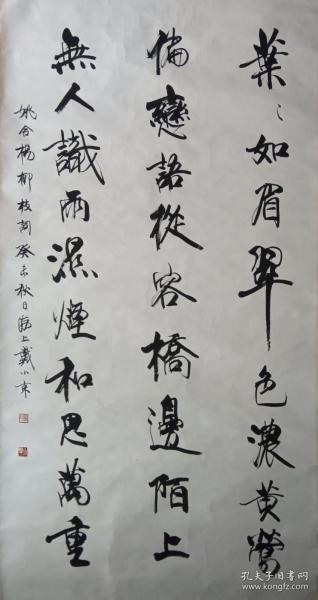 葉〻如眉翠色濃黃鶯
偏戀語從容橋邊陌上
無人識雨濕煙和思萬重
姚合楊柳枝詞癸未秋日海上戴小京
孔夫子旧书网